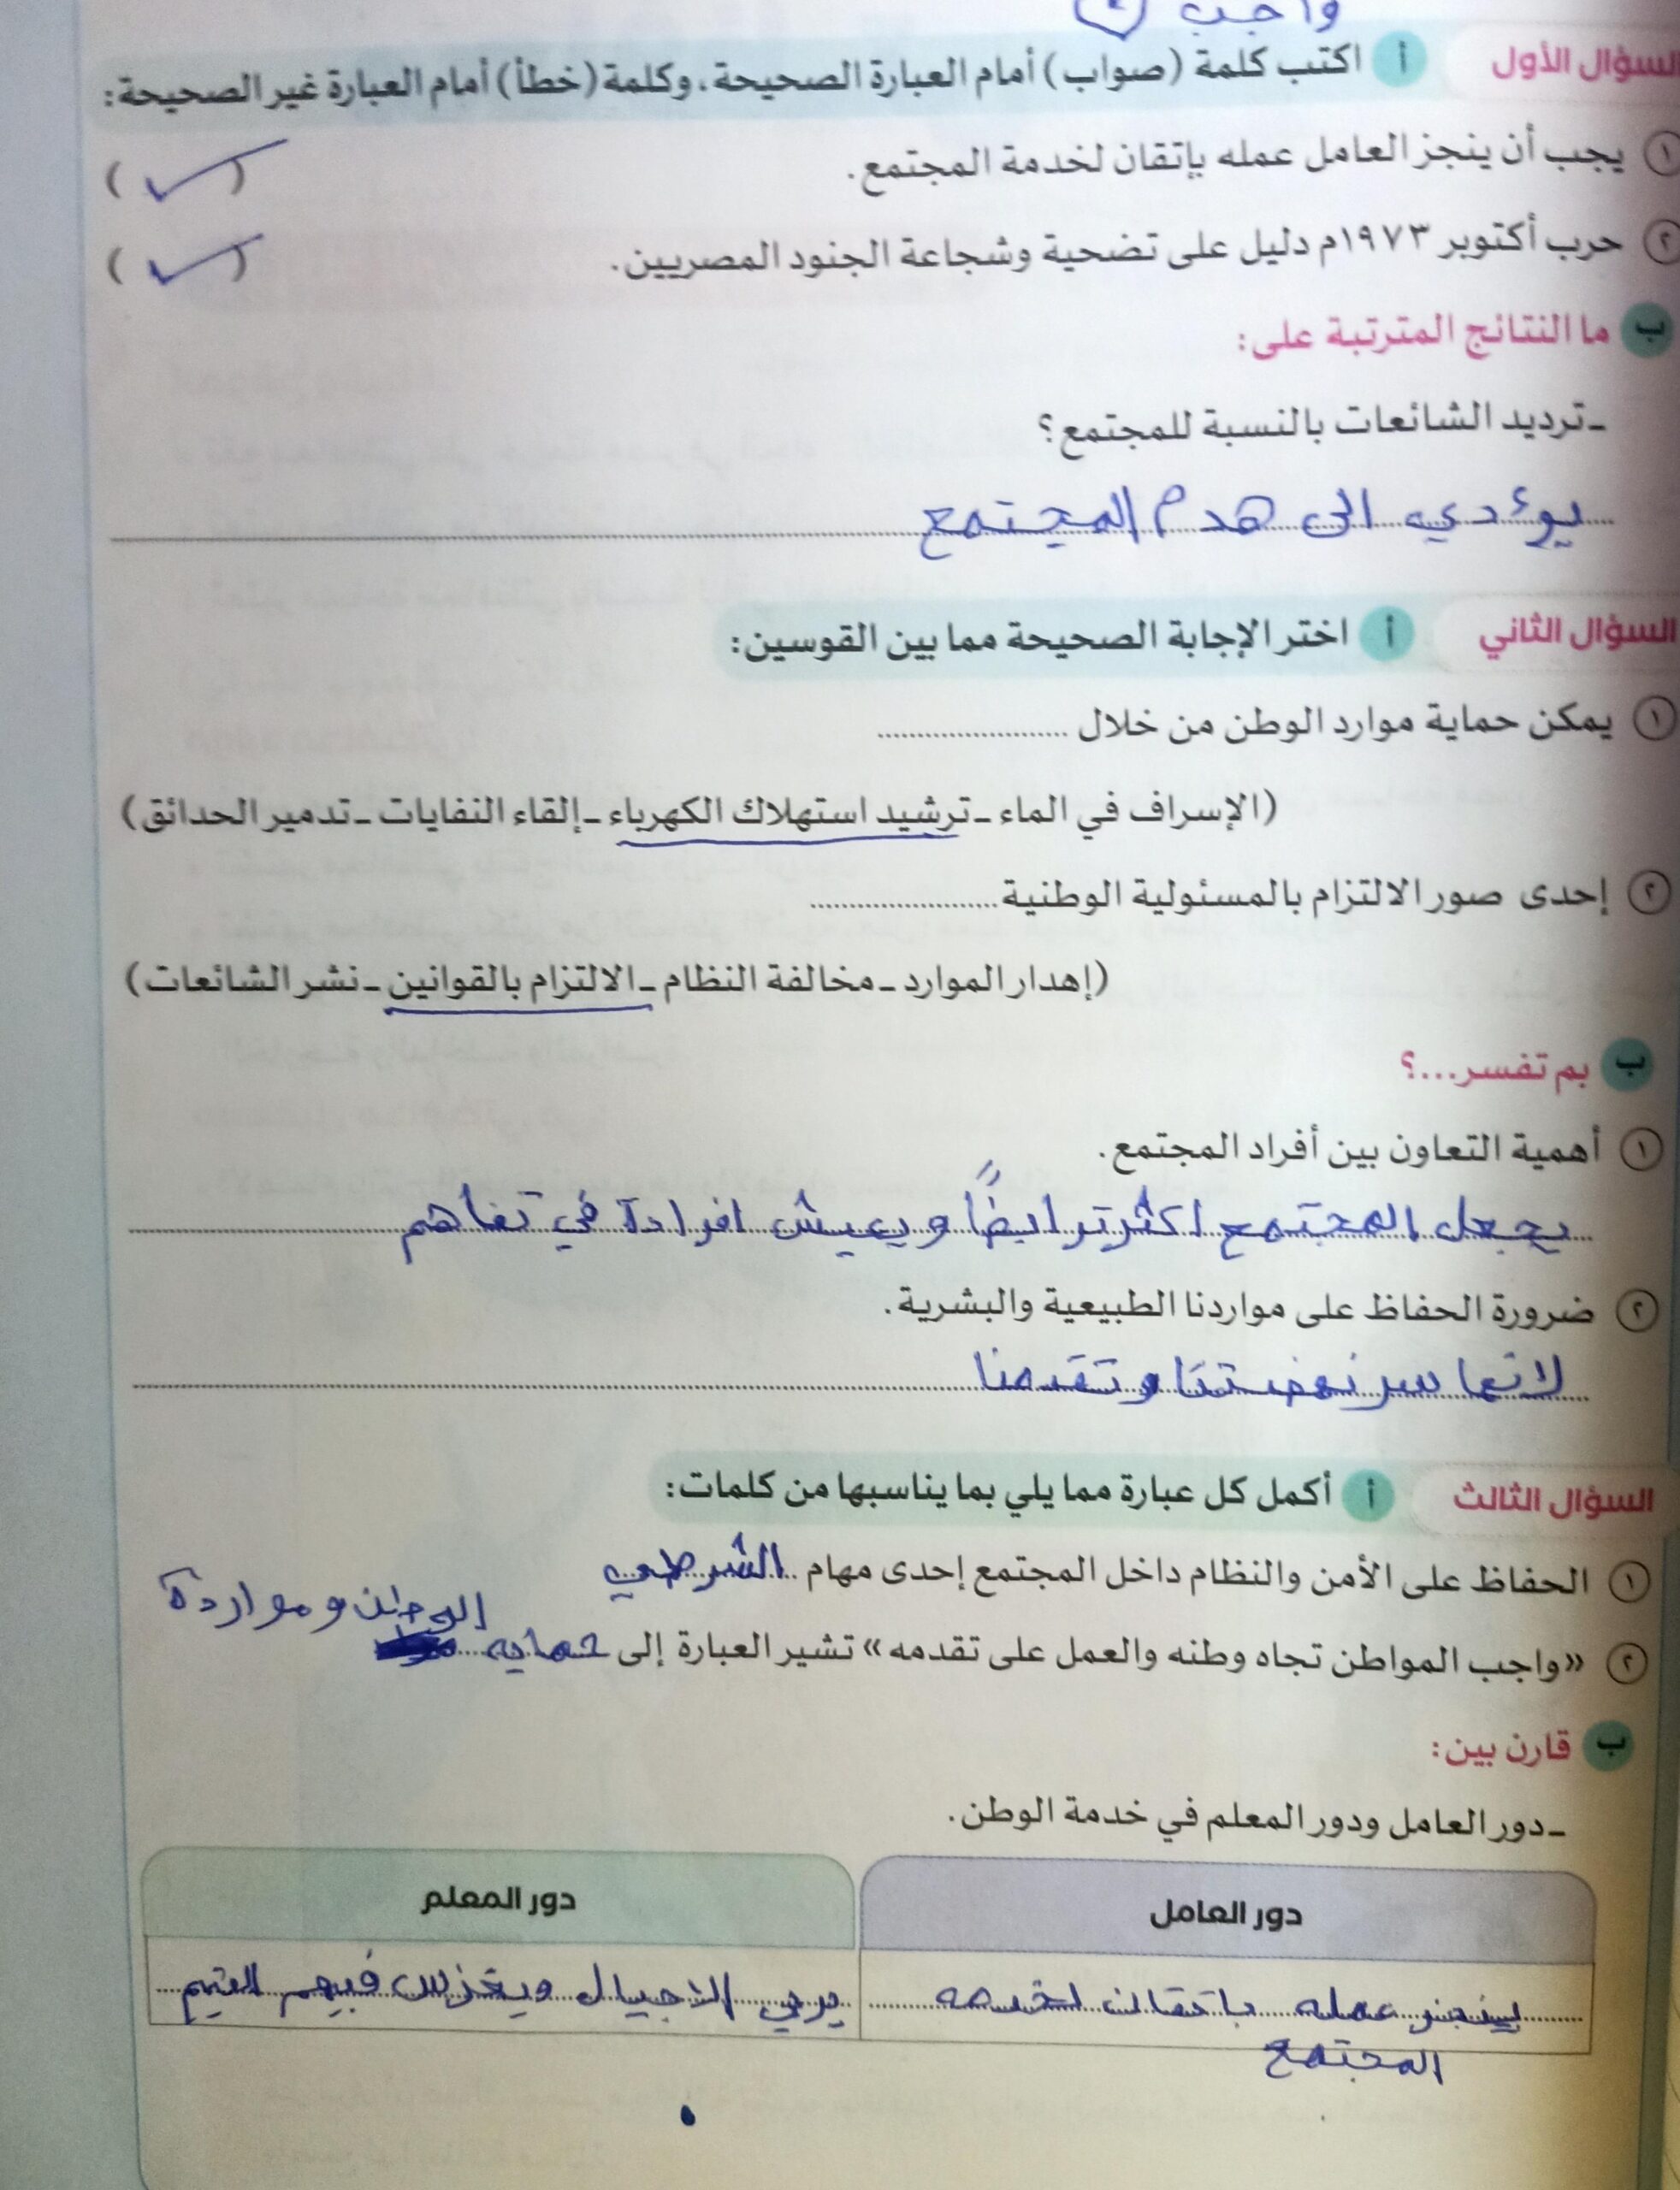 واجب
السؤال الأول أ اكتب كلمة (صواب) أمام العبارة الصحيحة، وكلمة (خطأ) أمام العبارة غير الصحيحة:
١ يجب أن ينجز العامل عمله بإتقان لخدمة المجتمع. (✓)
٢ حرب أكتوبر ١٩٧٣م دليل على تضحية وشجاعة الجنود المصريين. (✓)
ب ما النتائج المترتبة على:
- ترديد الشائعات بالنسبة للمجتمع؟
يوءدي الى هدم المجتمع
السؤال الثاني أ اختر الإجابة الصحيحة مما بين القوسين:
١ يمكن حماية موارد الوطن من خلال ......................
(الإسراف في الماء - ترشيد استهلاك الكهرباء - إلقاء النفايات - تدمير الحدائق)
٢ إحدى صور الالتزام بالمسئولية الوطنية ......................
(إهدار الموارد - مخالفة النظام - الالتزام بالقوانين - نشر الشائعات)
ب بم تفسر...؟
١ أهمية التعاون بين أفراد المجتمع.
يجعل المجتمع اكثر ترابضًا ويعيش افرادة في تفاهم
٢ ضرورة الحفاظ على مواردنا الطبيعية والبشرية.
لانها سر نهضتنا وتقدمنا
السؤال الثالث أ أكمل كل عبارة مما يلي بما يناسبها من كلمات:
١ الحفاظ على الأمن والنظام داخل المجتمع إحدى مهام الشرطي
٢ «واجب المواطن تجاه وطنه والعمل على تقدمه» تشير العبارة إلى حمايه الوطن ومواردة
ب قارن بين:
- دور العامل ودور المعلم في خدمة الوطن.
دور العامل دور المعلم
ينجز عمله باتقان لخدمه يربي الاجيال ويغرس فيهم القيم
المجتمع